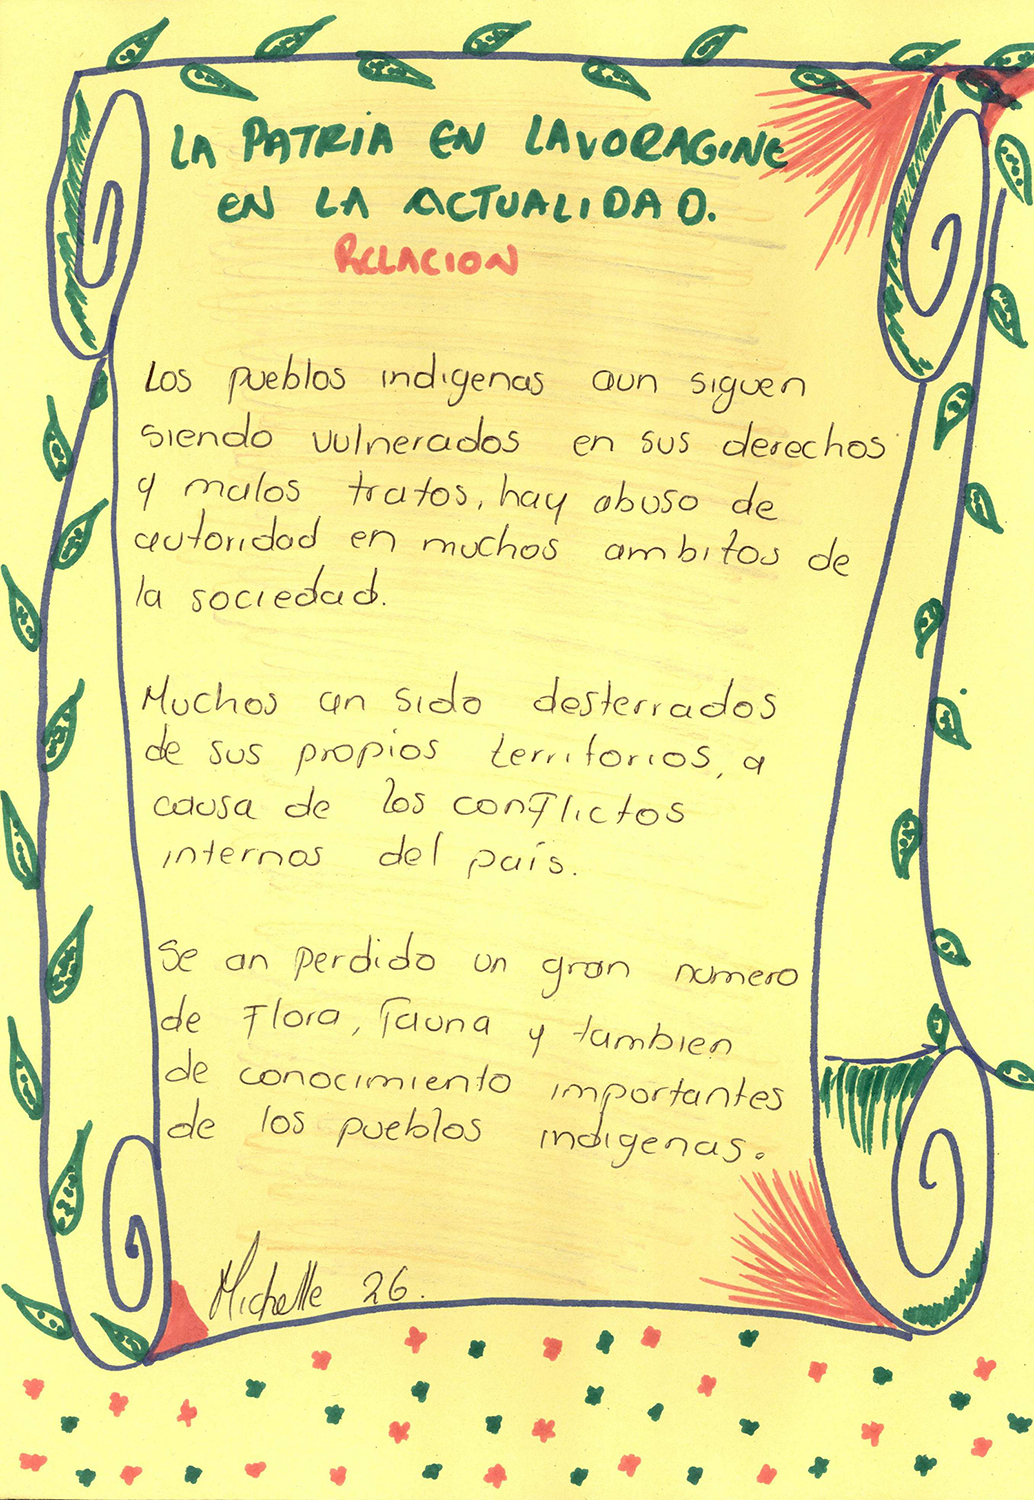 LA PATRIA EN LAVORAGINE
EN LA ACTUALIDAD.
RELACION
Los pueblos indigenas aun siguen
siendo vulnerados en sus derechos
y malos tratos, hay abuso de
autoridad en muchos ambitos de
la sociedad.
Muchos an sido desterrados
de sus propios territorios, a
causa de los conflictos
internos del país.
Se an perdido un gran numero
de flora, fauna y tambien
de conocimiento importantes
de los pueblos indigenas.
Michelle 26.